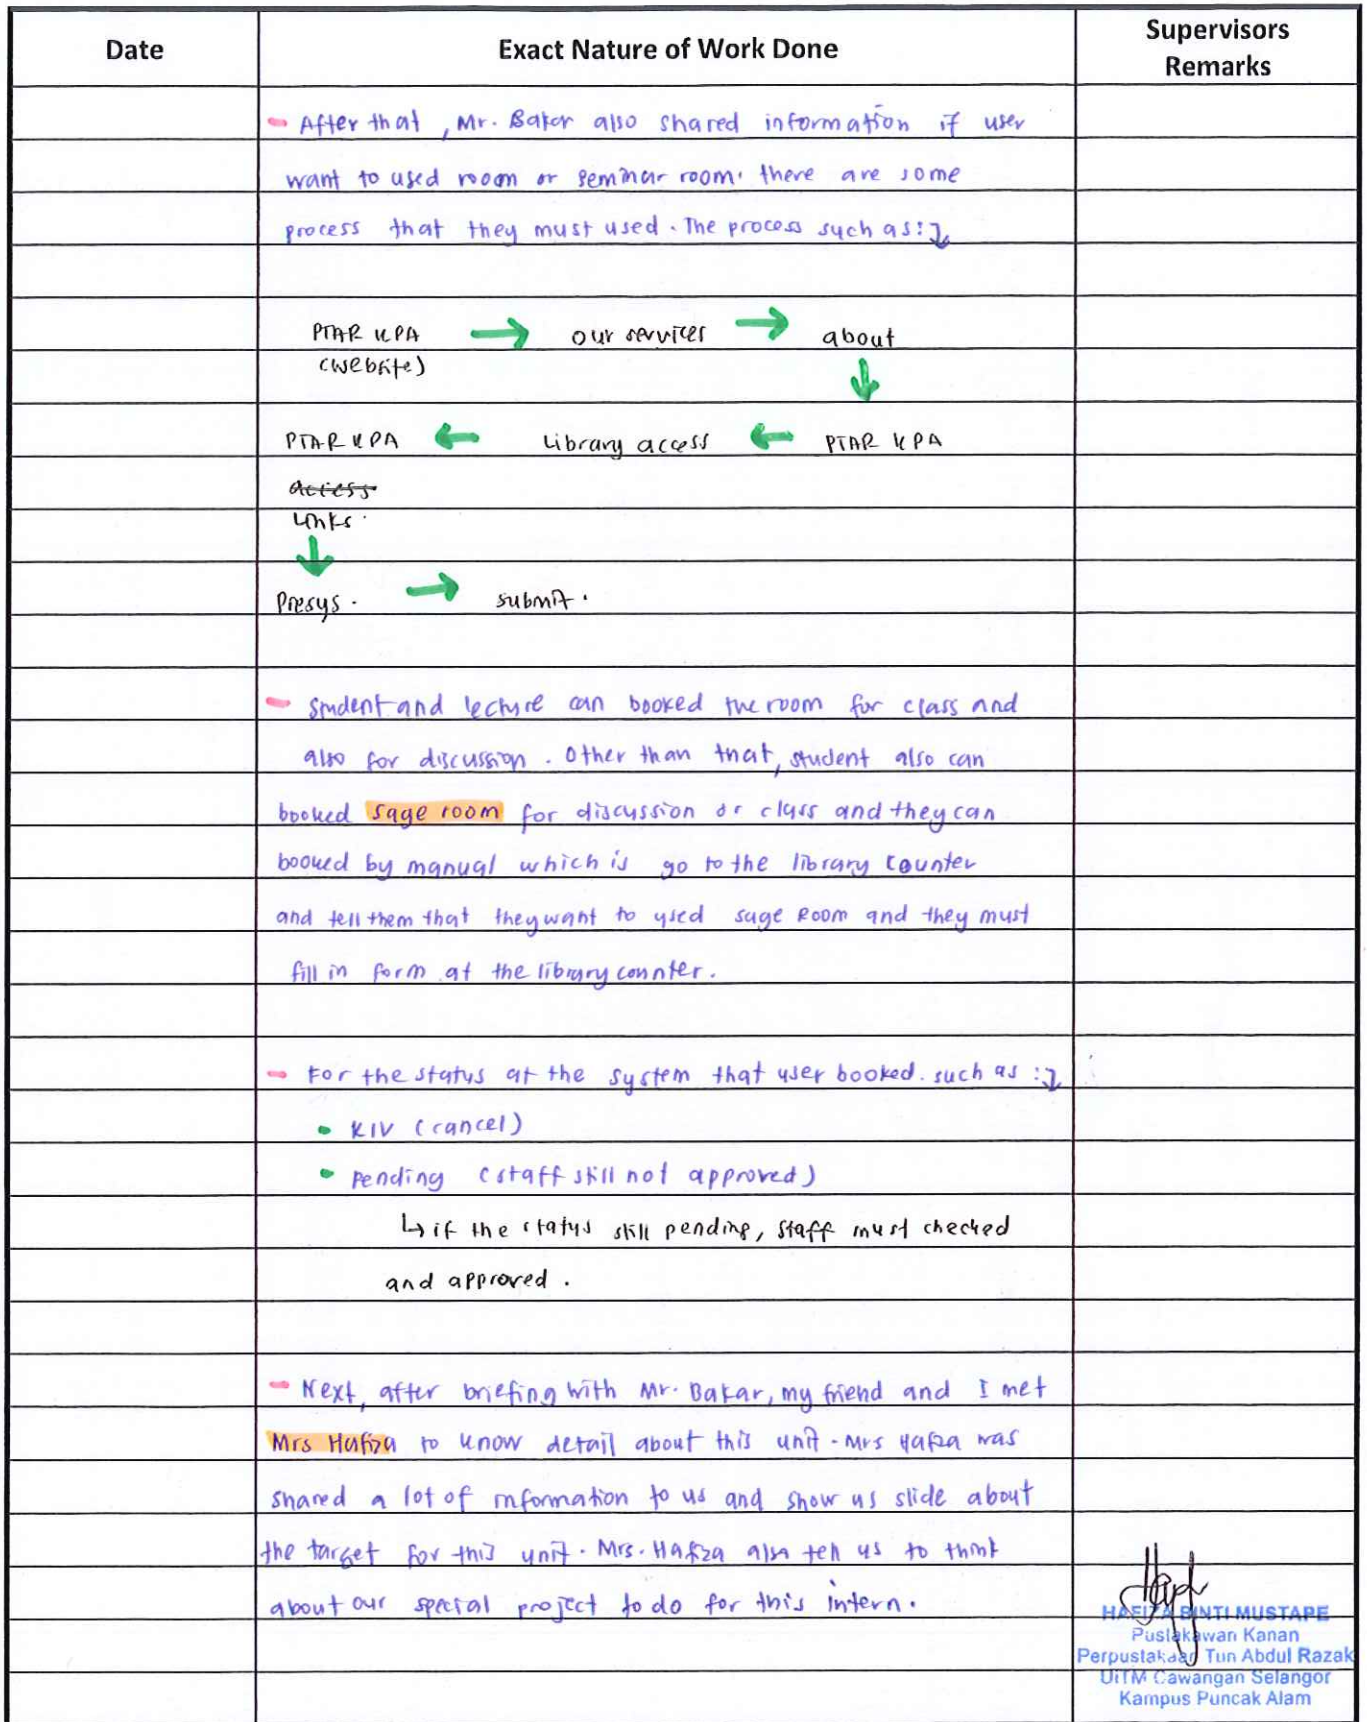 Date
Exact Nature of Work Done
Supervisors
Remarks
- After that, Mr. Bakar also shared information if user
want to used room or seminar room. there are some
process that they must used. The process such as:
PTAR KPA → our services → about
(website)
↓
PTAR KPA ← Library access ← PTAR KPA
access
Links.
↓
Presys. → submit.
- Student and lecture can booked the room for class and
also for discussion. Other than that, student also can
booked sage room for discussion or class and they can
booked by manual which is go to the library counter
and tell them that they want to used sage Room and they must
fill in form at the library counter.
- For the status at the system that user booked. such as :
• KIV (cancel)
• Pending (staff still not approved)
↳ if the status still pending, staff must checked
and approved.
- Next, after briefing with Mr. Bakar, my friend and I met
Mrs Hafiza to know detail about this unit. Mrs Hafiza was
shared a lot of information to us and show us slide about
the target for this unit. Mrs. Hafiza also tell us to think
about our special project to do for this intern.
HAFIZA BINTI MUSTAPE
Pustakawan Kanan
Perpustakaan Tun Abdul Razak
UiTM Cawangan Selangor
Kampus Puncak Alam